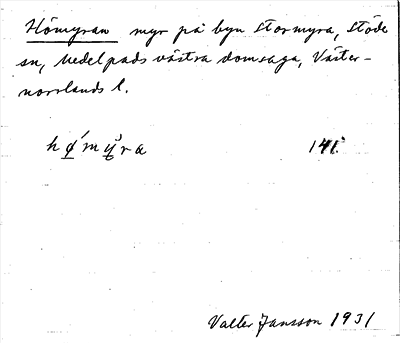 Hömyran myr på byn Stormyra, Stöde
sn, Medelpads västra domsaga, Väster-
norrlands l.
hǿmy̆ra 141.
Valter Jansson 1931